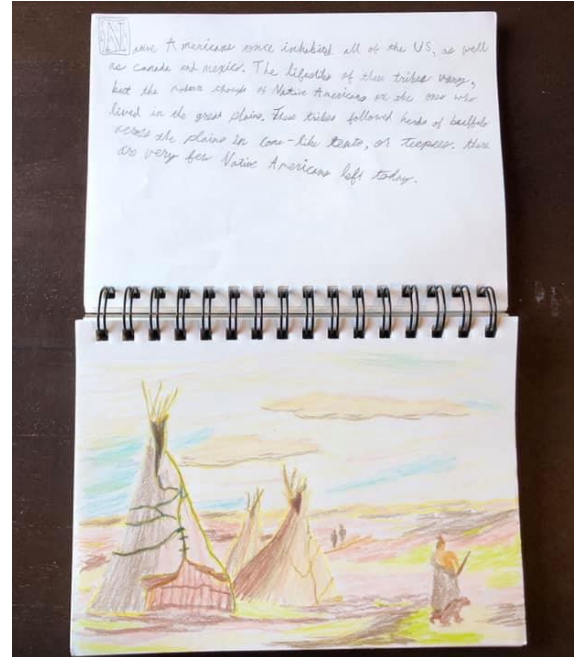 Native Americans once inhabited all of the US, as well
as Canada and Mexico. The lifestiles of these tribes vary,
but the most of Native Americans are the ones who
lived in the great plains. These tribes followed herds of buffalo
across the plains in cone-like tents, or teepees. there
are very few Native Americans left today.